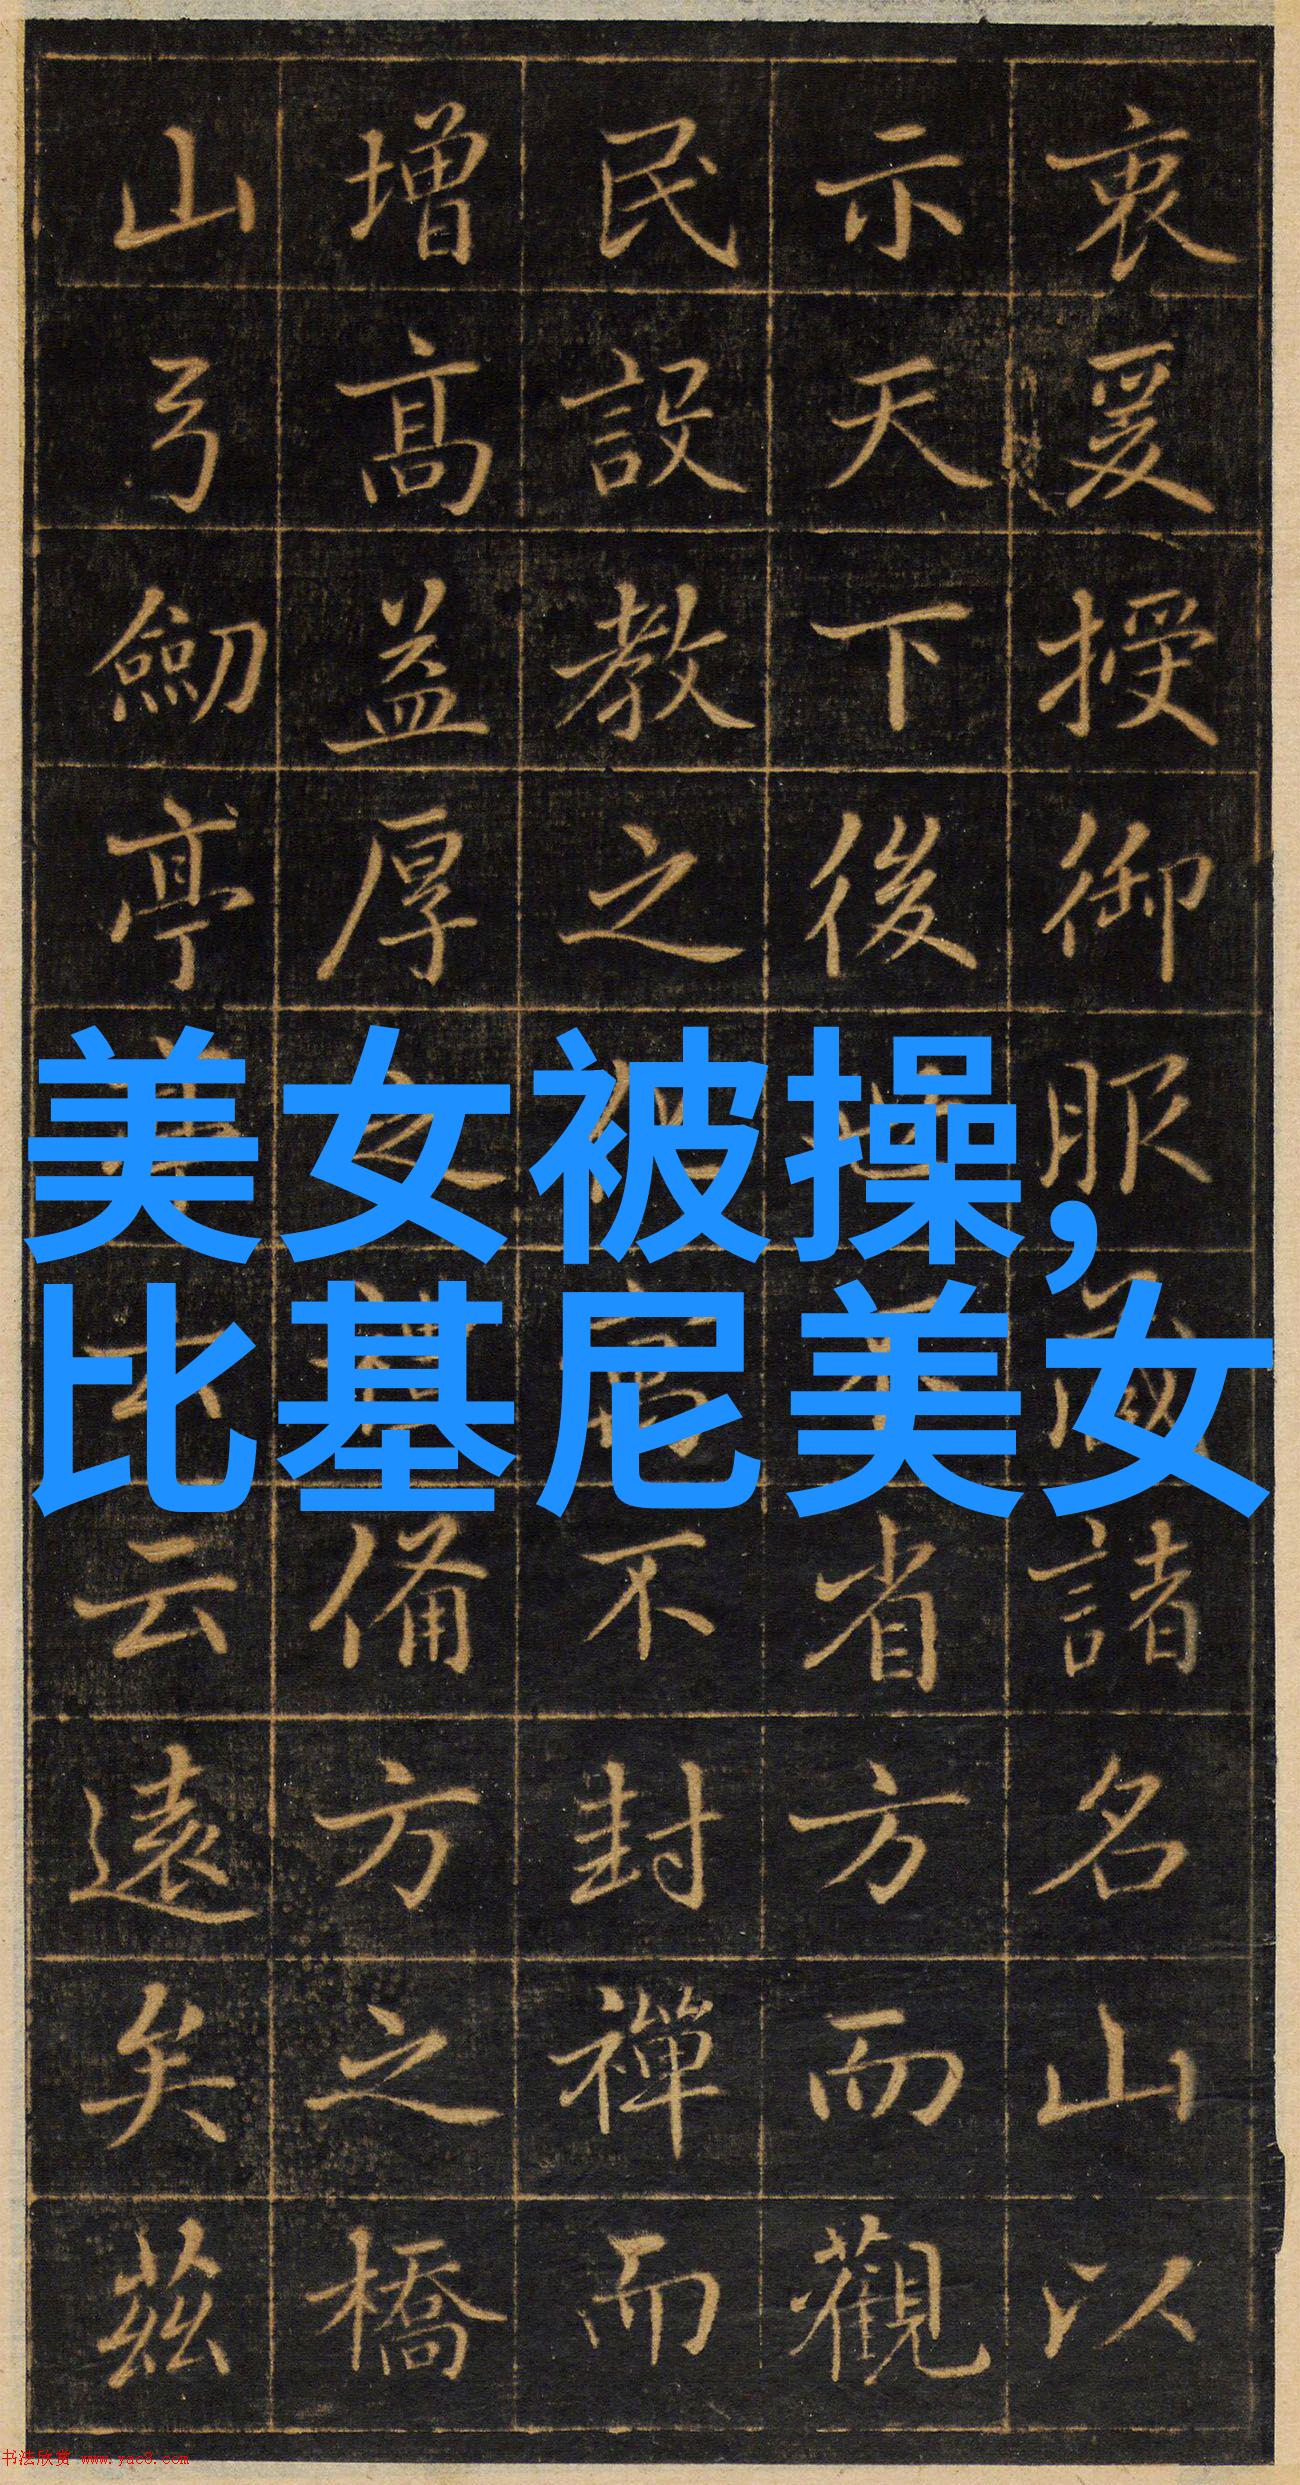 衷爰授御服諸名山以
示天下後省方而觀
民設教之不封禪而
增高益厚之備方之橋
山弓劒亭云遠矣茲
美女被操,
比基尼美女
书法欣赏 www.yac8.com